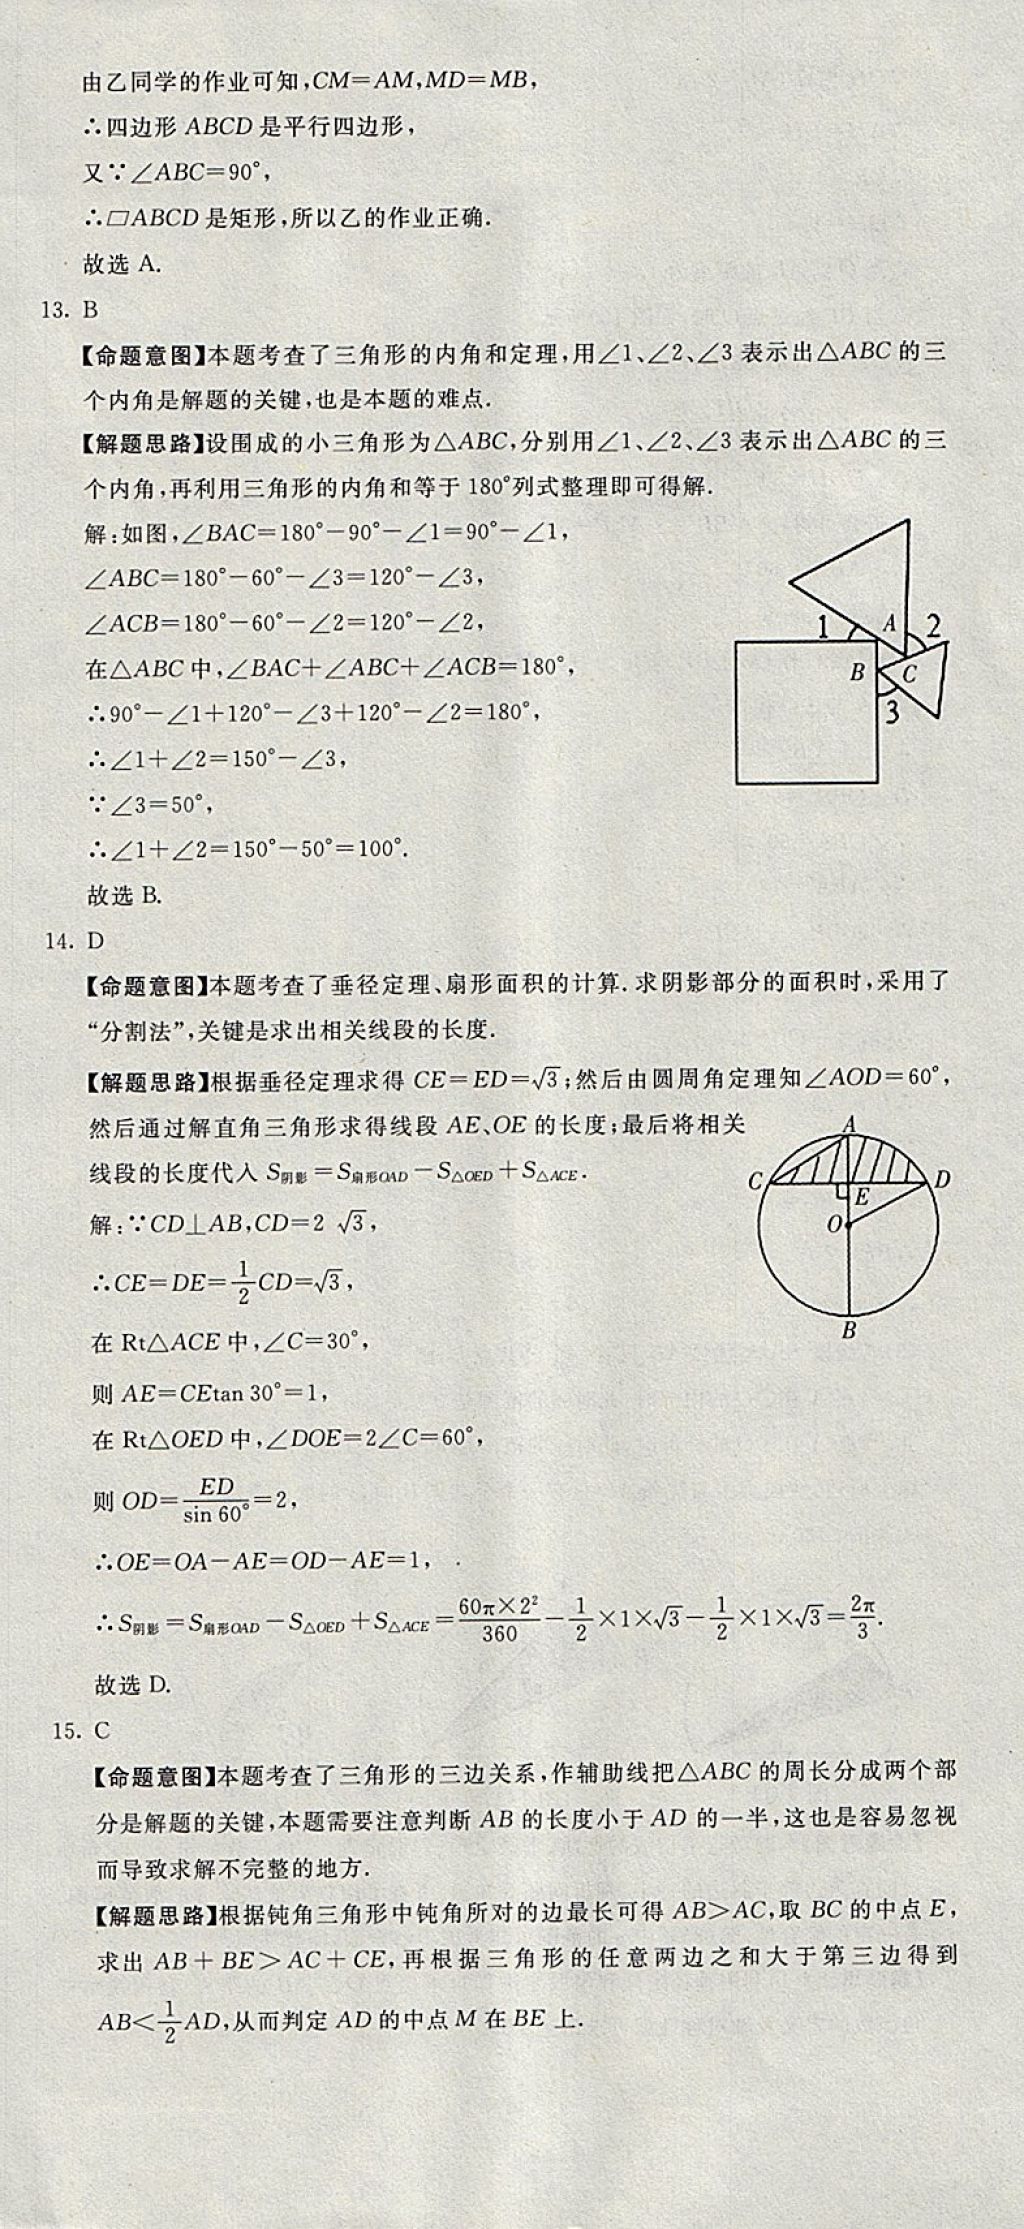 由乙同学的作业可知,CM=AM,MD=MB,
∴四边形 ABCD 是平行四边形,
又∵∠ABC=90°,
∴□ABCD 是矩形,所以乙的作业正确.
故选 A.
13. B
【命题意图】本题考查了三角形的内角和定理,用∠1、∠2、∠3 表示出△ABC 的三
个内角是解题的关键,也是本题的难点.
【解题思路】设围成的小三角形为△ABC,分别用∠1、∠2、∠3 表示出△ABC 的三
个内角,再利用三角形的内角和等于 180°列式整理即可得解.
解:如图,∠BAC=180°-90°-∠1=90°-∠1,
∠ABC=180°-60°-∠3=120°-∠3,
∠ACB=180°-60°-∠2=120°-∠2,
在△ABC 中,∠BAC+∠ABC+∠ACB=180°,
∴90°-∠1+120°-∠3+120°-∠2=180°,
∴∠1+∠2=150°-∠3,
∵∠3=50°,
∴∠1+∠2=150°-50°=100°.
故选 B.
1 A 2
B C
3
14. D
【命题意图】本题考查了垂径定理、扇形面积的计算.求阴影部分的面积时,采用了
“分割法”,关键是求出相关线段的长度.
【解题思路】根据垂径定理求得 CE=ED=√3;然后由圆周角定理知∠AOD=60°,
然后通过解直角三角形求得线段 AE、OE 的长度;最后将相关
线段的长度代入 S阴影=S扇形OAD-S△OED+S△ACE.
解:∵CD⊥AB,CD=2 √3,
∴CE=DE=1/2CD=√3,
在 Rt△ACE 中,∠C=30°,
则 AE=CEtan 30°=1,
在 Rt△OED 中,∠DOE=2∠C=60°,
则 OD=ED/sin 60°=2,
∴OE=OA-AE=OD-AE=1,
∴S阴影=S扇形OAD-S△OED+S△ACE=60π×2²/360-1/2×1×√3-1/2×1×√3=2π/3.
故选 D.
A
C D
E
O
B
15. C
【命题意图】本题考查了三角形的三边关系,作辅助线把△ABC 的周长分成两个部
分是解题的关键,本题需要注意判断 AB 的长度小于 AD 的一半,这也是容易忽视
而导致求解不完整的地方.
【解题思路】根据钝角三角形中钝角所对的边最长可得 AB>AC,取 BC 的中点 E,
求出 AB+BE>AC+CE,再根据三角形的任意两边之和大于第三边得到
AB<1/2AD,从而判定 AD 的中点 M 在 BE 上.